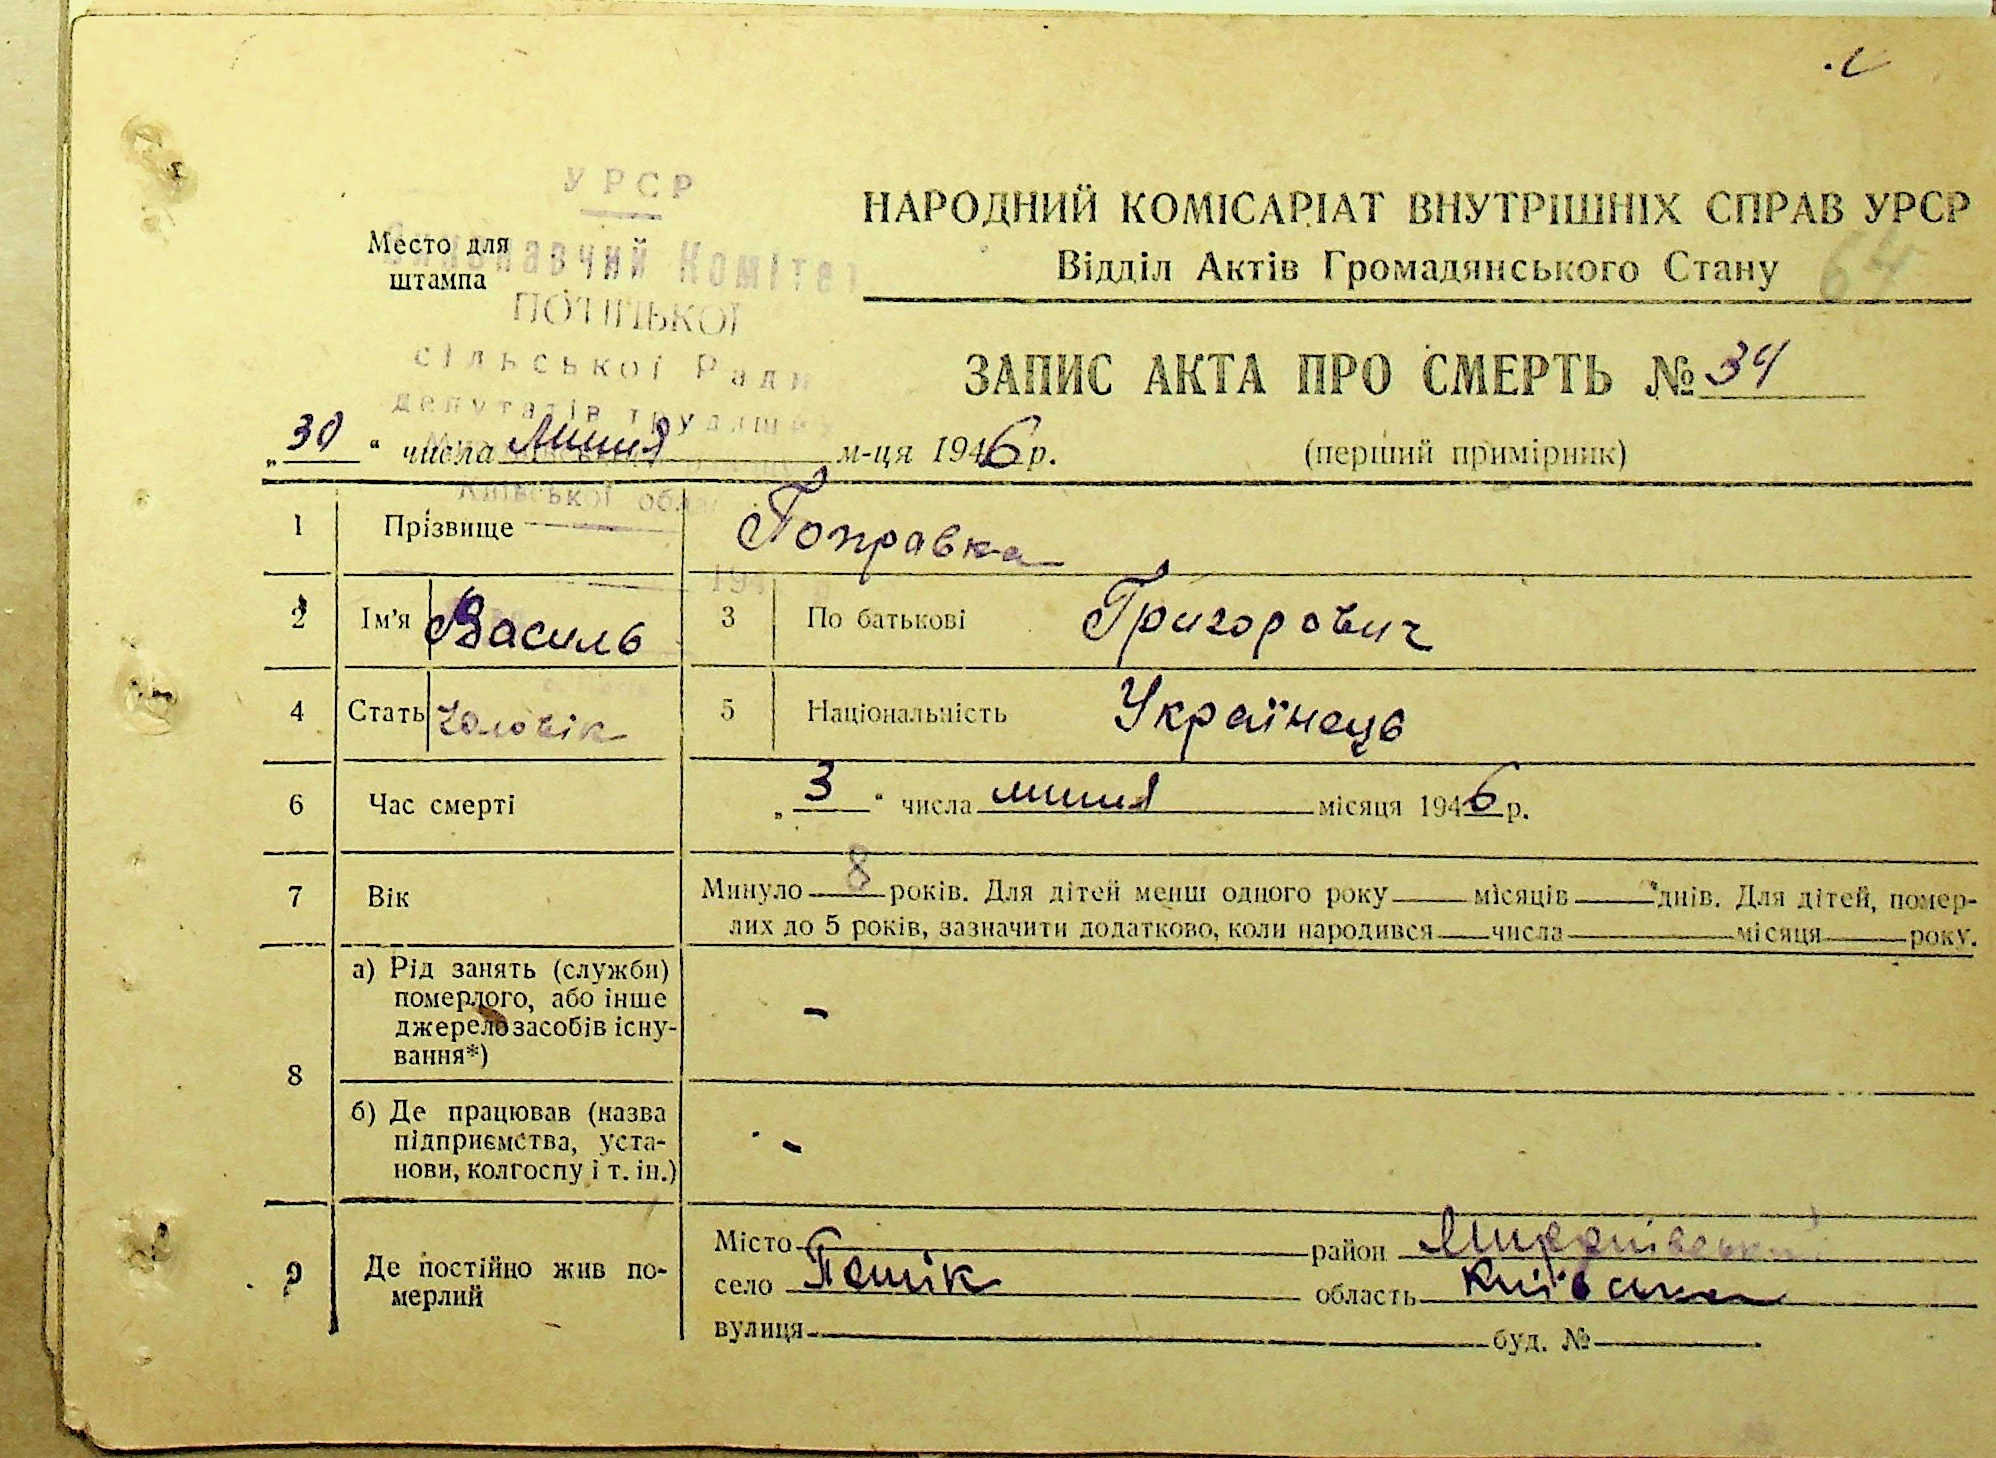 УРСР
Виконавчий Комітет
ПОТІЦЬКОЇ
сільської Ради
депутатів трудящих
Київської обл
194
Место для
штампа
НАРОДНИЙ КОМІСАРІАТ ВНУТРІШНІХ СПРАВ УРСР
Відділ Актів Громадянського Стану
64
ЗАПИС АКТА ПРО СМЕРТЬ № 34
„30“ числа липня м-ця 1946 р. (перший примірник)
1 Прізвище Поправка
2 Ім'я Василь 3 По батькові Григорович
4 Стать Чоловік 5 Національність Українець
6 Час смерті „3“ числа липня місяця 1946 р.
7 Вік Минуло 8 років. Для дітей менш одного року місяців днів. Для дітей, помер-
лих до 5 років, зазначити додатково, коли народився числа місяця року.
8 а) Рід занять (служби)
померлого, або інше
джерело засобів існу-
вання*) -
б) Де працював (назва
підприємства, уста-
нови, колгоспу і т. ін.) -
9 Де постійно жив по-
мерлий
Місто район Миронівський
село Потік область Київська
вулиця буд. №